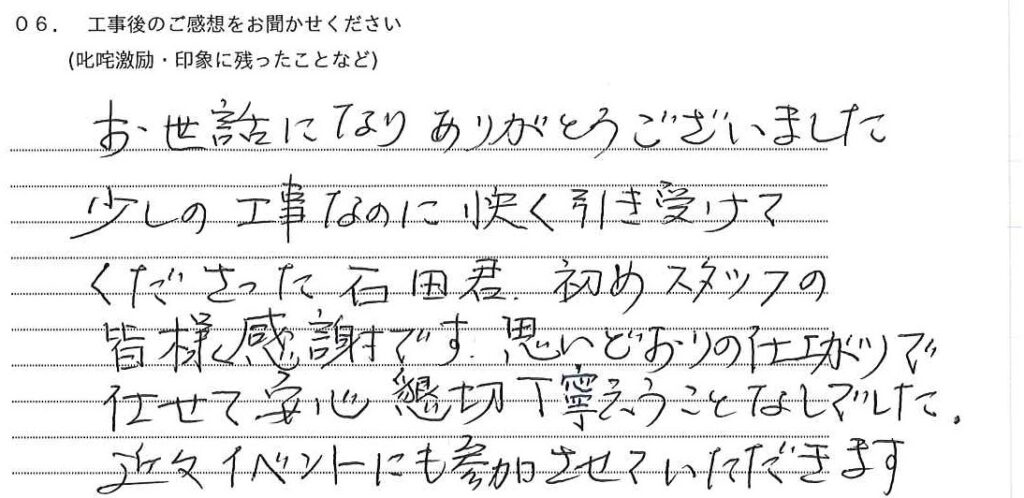 06. 工事後のご感想をお聞かせください
(叱咤激励・印象に残ったことなど)
お世話になりありがとうございました
少しの工事なのに快く引き受けて
くださった石田君.初めスタッフの
皆様感謝です.思いどおりの仕上がりで
任せて安心懇切丁寧言うことなしでした.
近々イベントにも参加させていただきます